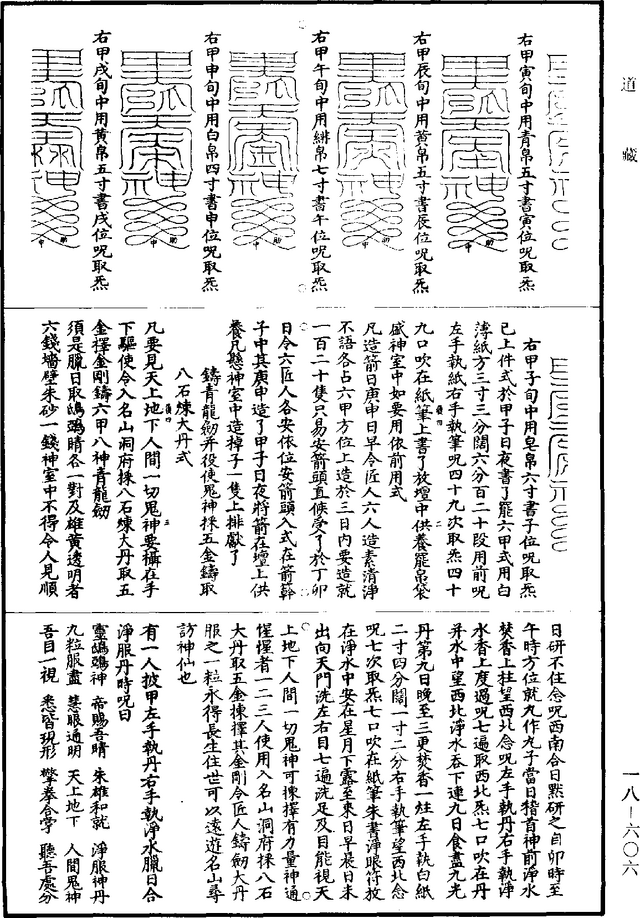 道藏
右甲寅旬中用青帛五寸書寅位呪取炁
右甲辰旬中用黄帛五寸書辰位呪取炁
右甲午旬中用緋帛七寸書午位呪取炁
右甲申旬中用白帛四寸書申位呪取炁
右甲戌旬中用黄帛五寸書戌位呪取炁
右甲子旬中用皂帛六寸書子位呪取炁
已上件式於甲子日夜書了罷六甲式用白
薄紙方三寸三分闊六分百二十段用前呪
左手執紙右手執筆呪四十九次取炁四十
九口吹在紙筆上書了放壇中供養罷帛袋
盛神室中如要用依前用式
凡造箭日庚申日早令匠人六人造素清淨
不語各占六甲方位上造於三日内要造就
一百二十隻只易安箭頭直候受了於丁卯
日令六匠人各安依位安箭頭入式在箭幹
子中其庚申造了甲子日夜將箭在壇上供
養凡懸神室中造掉子一隻上排獻了
鑄青龍劒并役使鬼神採五金鑄取
八石煉大丹式
凡要見天上地下人間一切鬼神要攝在手
下驅使令入名山洞府採八石煉大丹取五
金擇金剛鑄六甲八神青龍劒
須是臘日取鴟鴞睛各一對及雄黄透明者
六錢墻壁朱砂一錢神室中不得令人見順
日研不住念呪西南合日㸃研之自卯時至
午時方位就九作九子當日稽首神前淨水
焚香上柱望西北念呪左手執丹右手執淨
水香上度過呪七遍取西北炁七口吹在丹
并水中望西北淨水吞下連九日食盡九光
丹第九日晚至三更焚香一炷左手執白紙
二寸四分闊一寸二分右手執筆望西北念
呪七次取炁七口吹在紙筆朱書淨眼符投
在淨水中安在星月下露至來日早晨日未
出向天門洗左右目七遍洗足及目能視天
上地下人間一切鬼神可揀擇有力量神通
惺惺者一二三人使用入名山洞府採八石
大丹取五金揀擇其金剛令匠人鑄劒大丹
服之一粒永得長生住世可以遠遊名山尋
訪神仙也
有一人披甲左手執丹右手執淨水臘日合
淨服丹時呪曰
靈鴟鴞神 帝賜吾睛 朱雄和就 淨服神丹
九粒服盡 慧眼通明 天上地下 人間鬼神
吾目一視 悉皆現形 擎拳合掌 聽吾處分
一八－六〇六